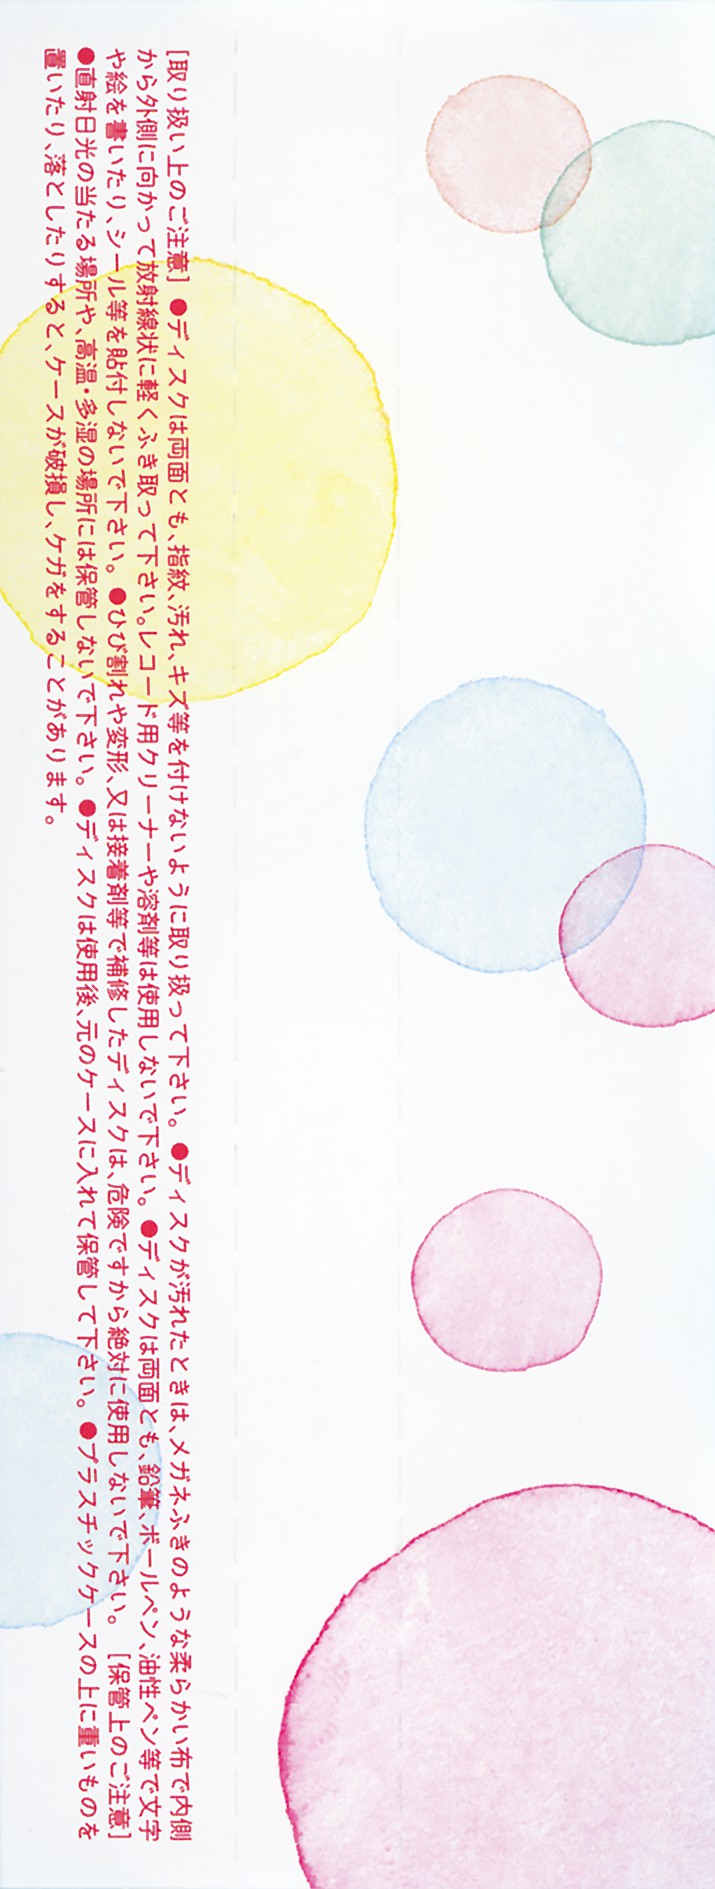 [取り扱い上のご注意] ●ディスクは両面とも、指紋、汚れ、キズ等を付けないように取り扱って下さい。 ●ディスクが汚れたときは、メガネふきのような柔らかい布で内側
から外側に向かって放射線状に軽くふき取って下さい。レコード用クリーナーや溶剤等は使用しないで下さい。 ●ディスクは両面とも、鉛筆、ボールペン、油性ペン等で文字
や絵を書いたり、シール等を貼付しないで下さい。 ●ひび割れや変形、又は接着剤等で補修したディスクは、危険ですから絶対に使用しないで下さい。 [保管上のご注意]
●直射日光の当たる場所や、高温・多湿の場所には保管しないで下さい。 ●ディスクは使用後、元のケースに入れて保管して下さい。 ●プラスチックケースの上に重いものを
置いたり、落としたりすると、ケースが破損し、ケガをすることがあります。